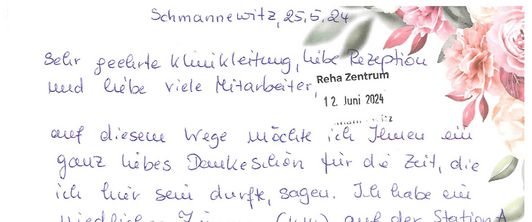 Schmannewitz, 25.5.24
Sehr geehrte Klinikleitung, liebe Rezeption
und liebe viele Mitarbeiter,
Reha Zentrum
12. Juni 2024
auf diesem Wege möchte ich Ihnen ein
ganz liebes Dankeschön für die Zeit, die
ich hier sein durfte, sagen. Ich habe ein
auf der Station